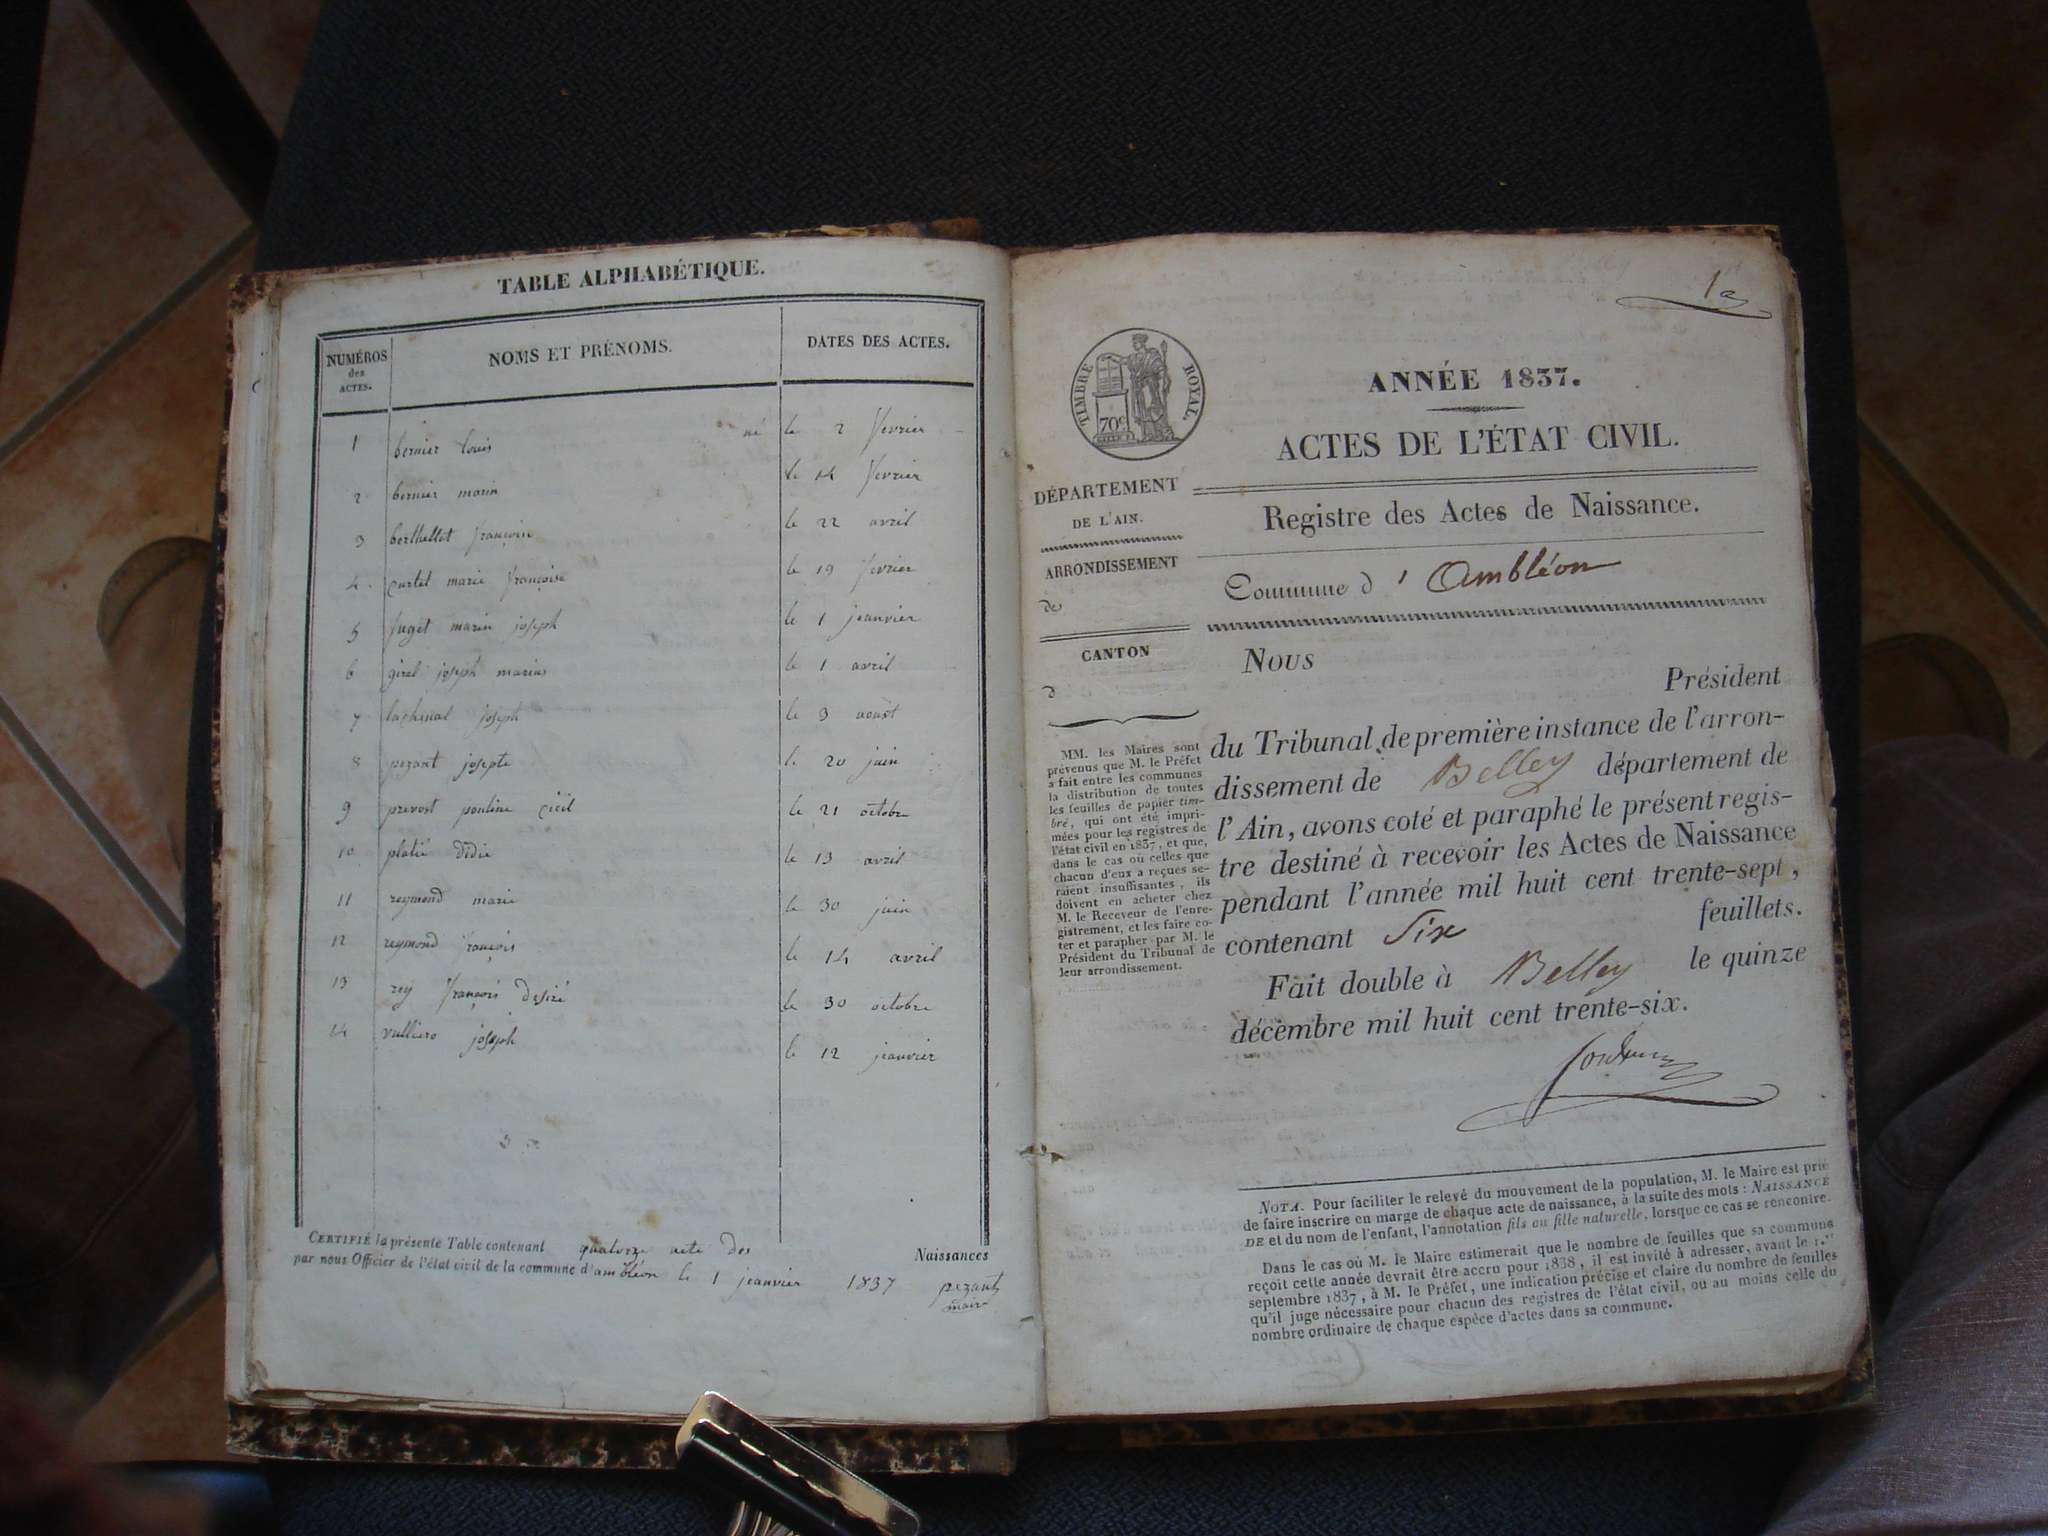 TABLE ALPHABÉTIQUE.
NUMÉROS des ACTES. NOMS ET PRÉNOMS. DATES DES ACTES.
1 bernier louis né le 2 fevrier
2 bernier marin le 14 fevrier
3 berthellet françoise le 22 avril
4 curtet marie françoise le 19 fevrier
5 fuget marin joseph le 1 jeanvier
6 girel joseph marius le 1 avril
7 lachenal joseph le 3 aoust
8 pezant josepte le 20 juin
9 prevost pouline cicil le 21 octobre
10 platié didie le 13 avril
11 reymond marie le 30 juin
12 reymond françois le 14 avril
13 rey françois desiré le 30 octobre
14 joseph le 12 jeanvier
CERTIFIÉ la présente Table contenant quatorze acte des Naissances
par nous Officier de l'état civil de la commune d'ambléon le 1 jeanvier 1837 pezant
maire
1er
TIMBRE ROYAL.
70c
ANNÉE 1837.
ACTES DE L'ÉTAT CIVIL.
DÉPARTEMENT
DE L'AIN.
ARRONDISSEMENT
de
CANTON
d
MM. les Maires sont
prévenus que M. le Préfet
a fait entre les communes
la distribution de toutes
les feuilles de papier tim-
bré, qui ont été impri-
mées pour les registres de
l'état civil en 1837, et que,
dans le cas où celles que
chacun d'eux a reçues se-
raient insuffisantes, ils
doivent en acheter chez
M. le Receveur de l'enre-
gistrement, et les faire co-
ter et parapher par M. le
Président du Tribunal de
leur arrondissement.
Registre des Actes de Naissance.
Commune d'Ambléon
Nous
Président
du Tribunal de première instance de l'arron-
dissement de Belley département de
l'Ain, avons coté et paraphé le présent regis-
tre destiné à recevoir les Actes de Naissance
pendant l'année mil huit cent trente-sept,
contenant Six feuillets.
Fait double à Belley le quinze
décembre mil huit cent trente-six.
NOTA. Pour faciliter le relevé du mouvement de la population, M. le Maire est prié
de faire inscrire en marge de chaque acte de naissance, à la suite des mots : NAISSANCE
DE et du nom de l'enfant, l'annotation fils ou fille naturelle, lorsque ce cas se rencontre.
Dans le cas où M. le Maire estimerait que le nombre de feuilles que sa commune
reçoit cette année devrait être accru pour 1838, il est invité à adresser, avant le 1.er
septembre 1837, à M. le Préfet, une indication précise et claire du nombre de feuilles
qu'il juge nécessaire pour chacun des registres de l'état civil, ou au moins celle du
nombre ordinaire de chaque espèce d'actes dans sa commune.